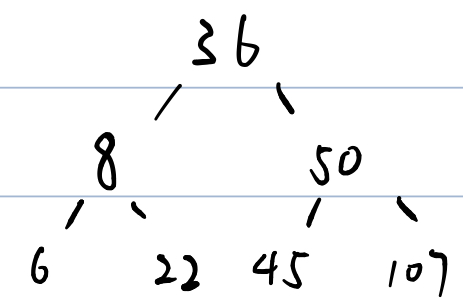 36
8 50
6 22 45 107